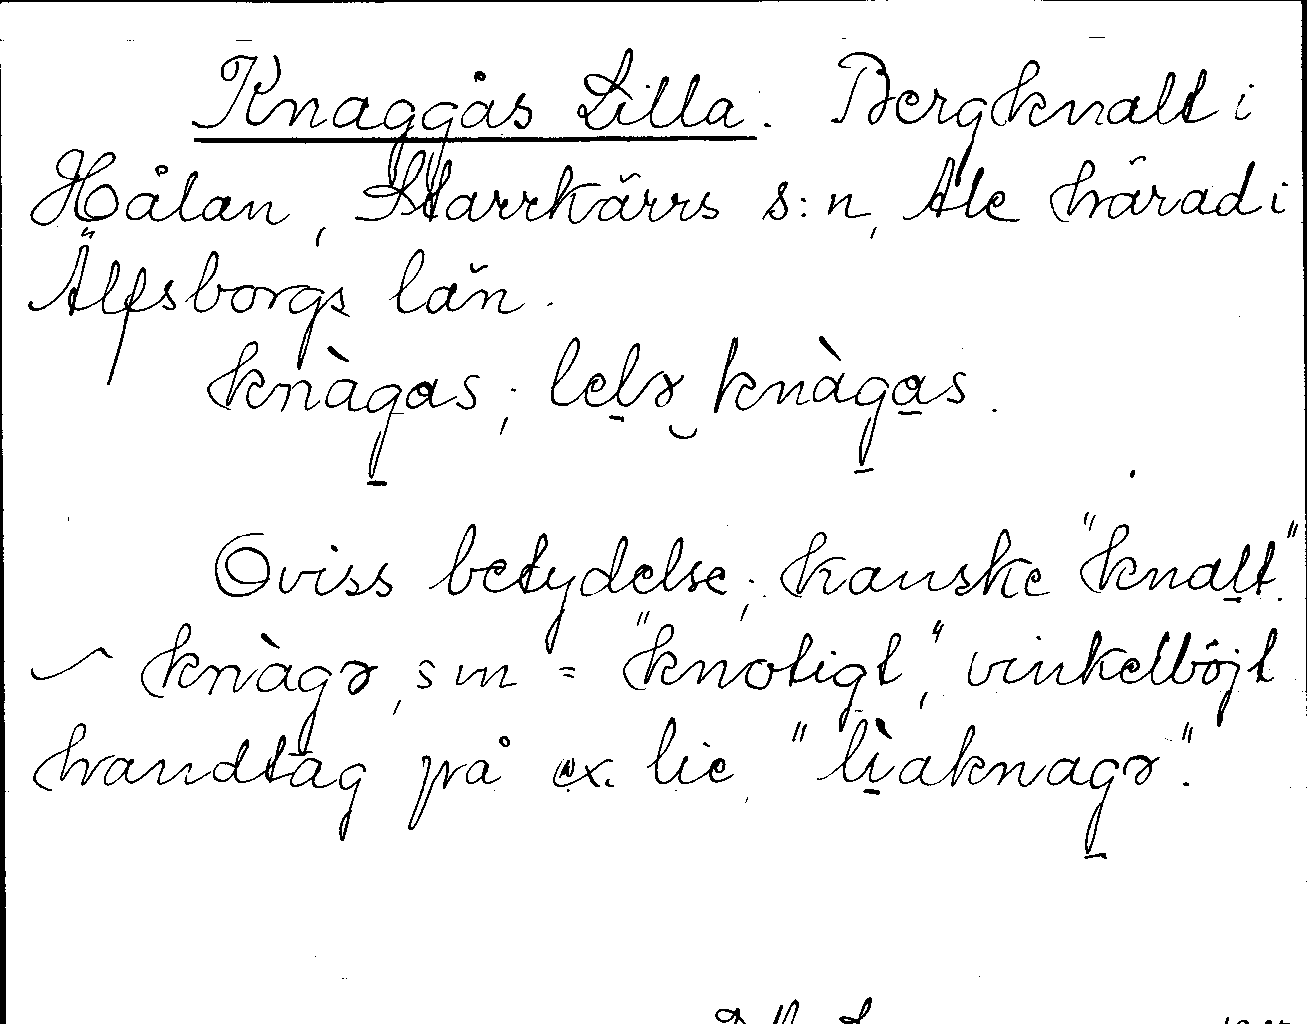 Knaggås Lilla. Bergknalt i
Hålan, Starrkärrs s:n, Ale härad i
Älfsborgs län.
knàgas; lelɤ knàgas.
Oviss betydelse; kanske "knalt".
~ knàgɤ, sm = "knotigt", vinkelböjt
handtag på ex. lie, "lìaknagɤ".